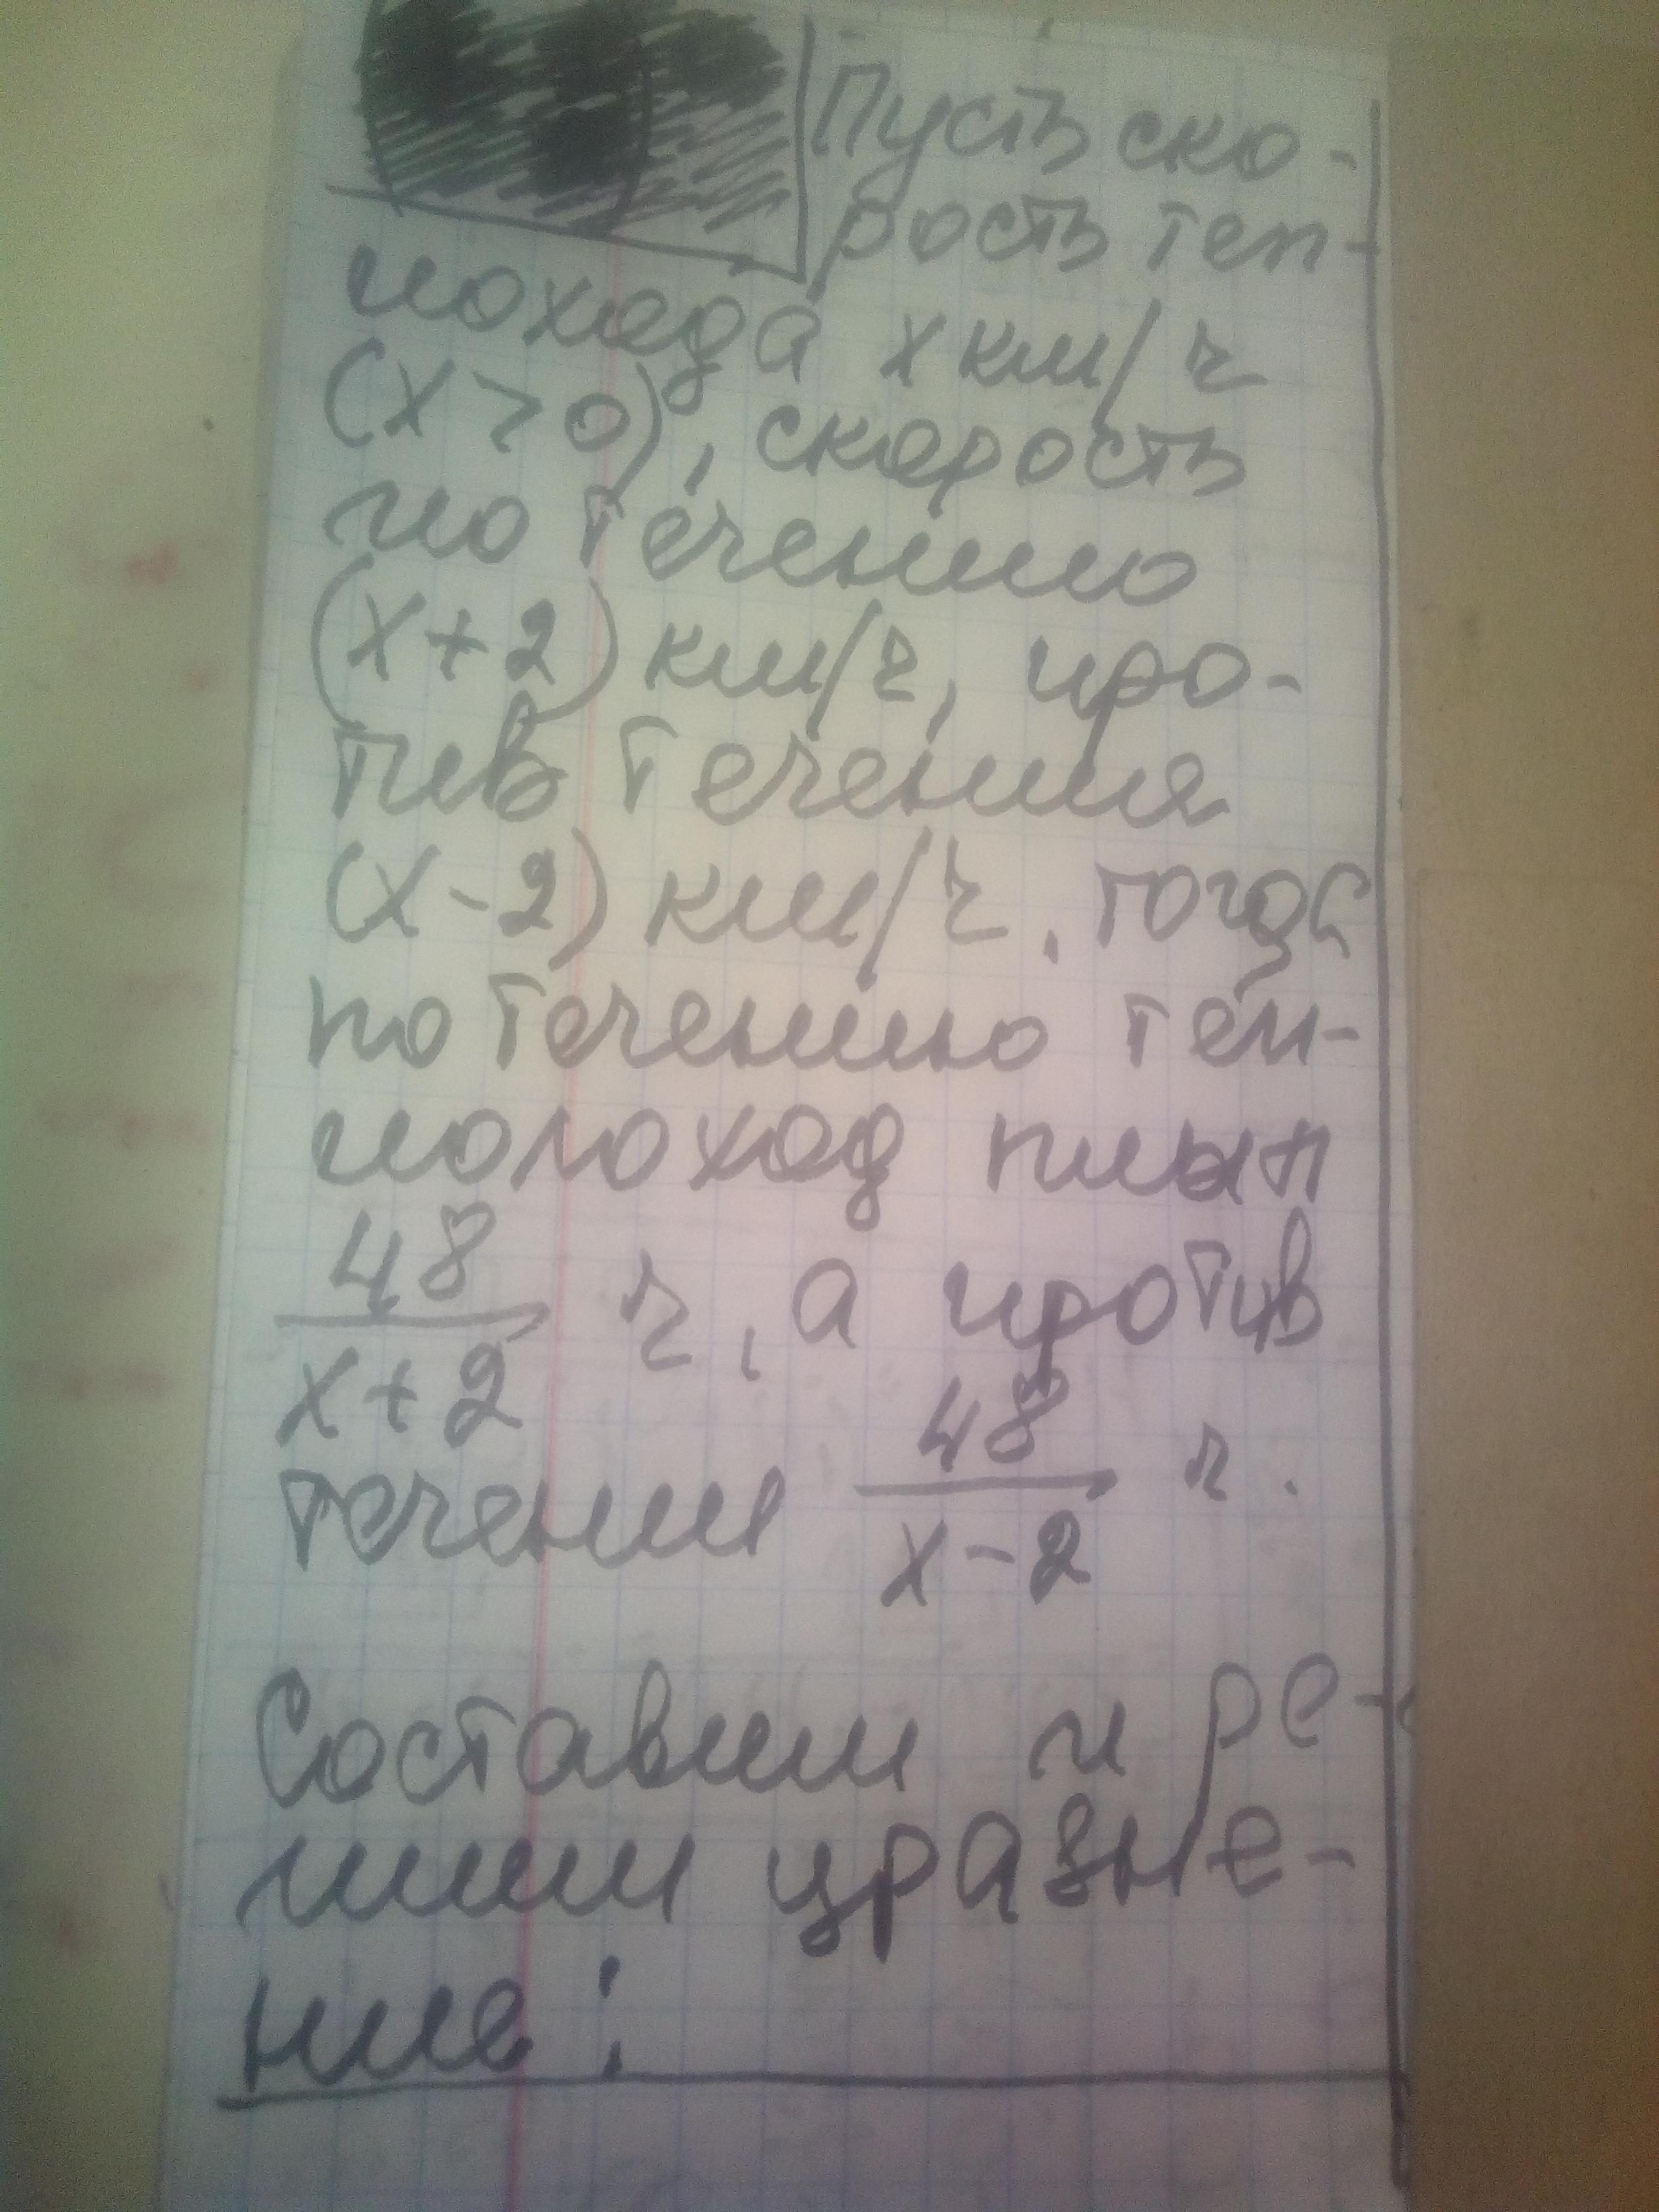 Пусть ско-
рость теп-
лохода х км/ч
(х > 0), скорость
по течению
(х + 2) км/ч, про-
тив течения
(х - 2) км/ч. тогда
по течению теп-
лолоход плыл
48/(х + 2) ч, а против
течении 48/(х - 2) ч.
Составим и ре-
шим уравне-
ние: